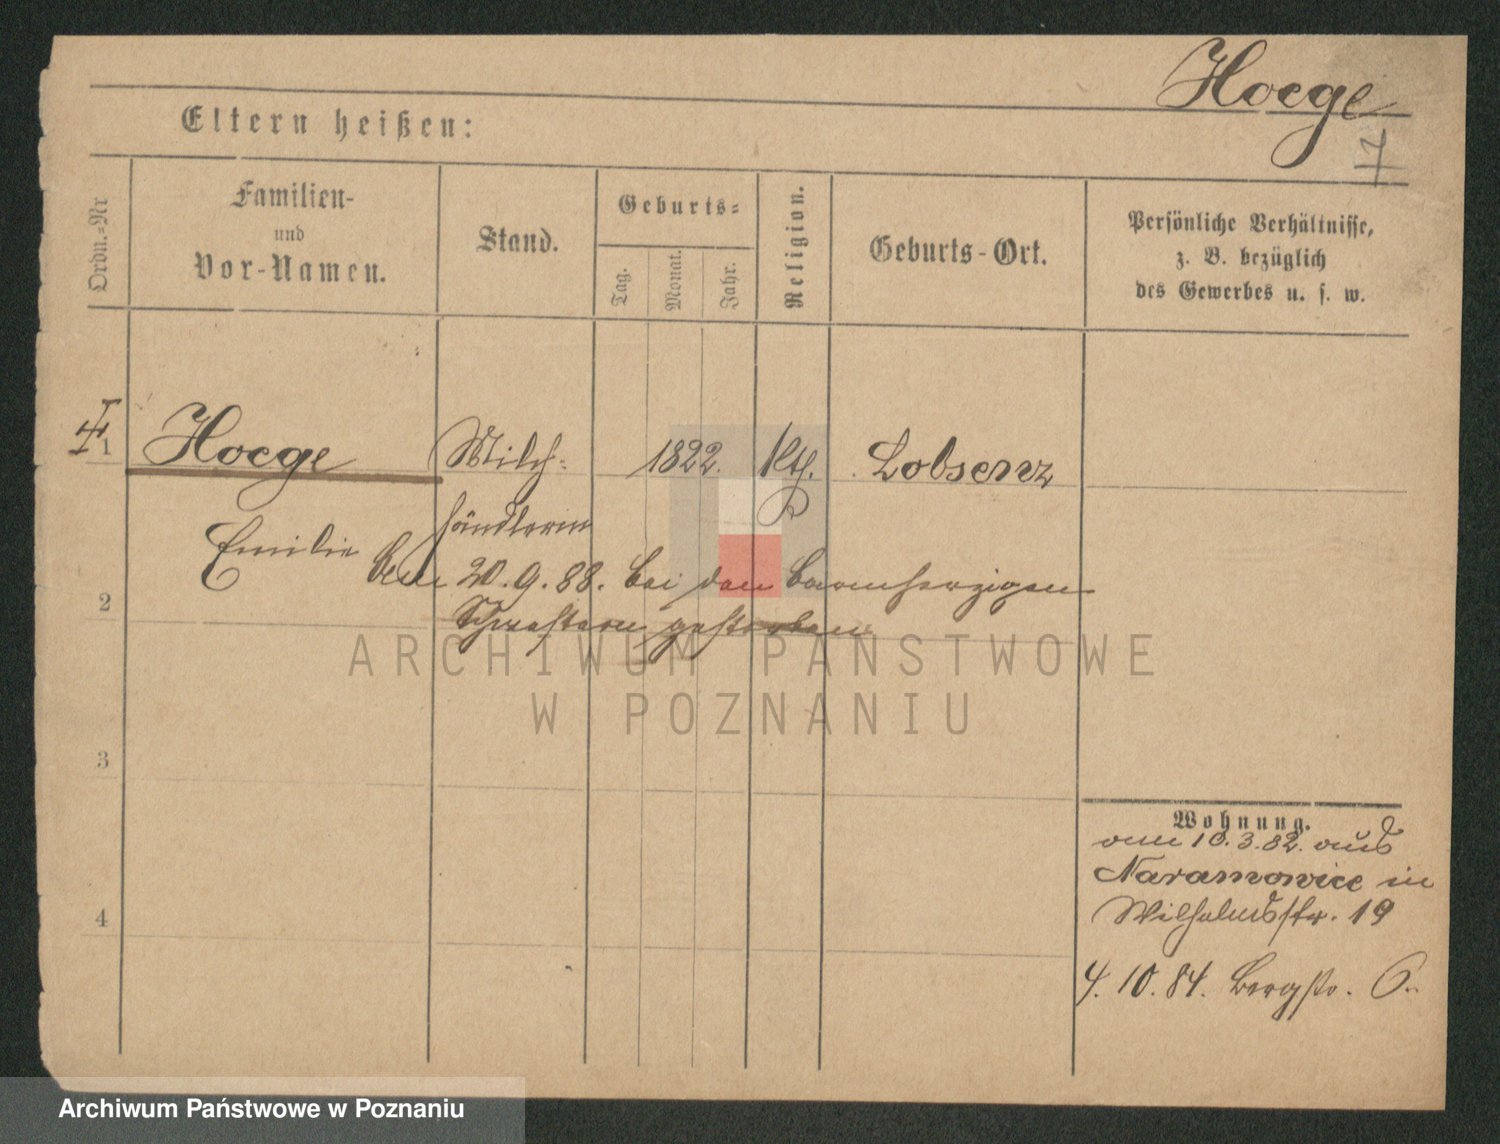 Hoege
7
Eltern heißen:
Ordn.=Nr
Familien-
und
Vor-Namen.
Stand.
Geburts=
Tag.
Monat.
Jahr.
Religion.
Geburts-Ort.
Persönliche Verhältnisse,
z. B. bezüglich
des Gewerbes u. s. w.
1 Hoege Milch= 1822. Kth. Lobsenz
händlerin
Emilie
Am 20.9.88. bei den barmherzigen
2
Schwestern gestorben
ARCHIWUM PAŃSTWOWE
W POZNANIU
3
4
Wohnung.
am 10.3.82. aus
Naramowice in
Wilhelmsstr. 19
4.10.84. Bergstr. 6.
Archiwum Państwowe w Poznaniu